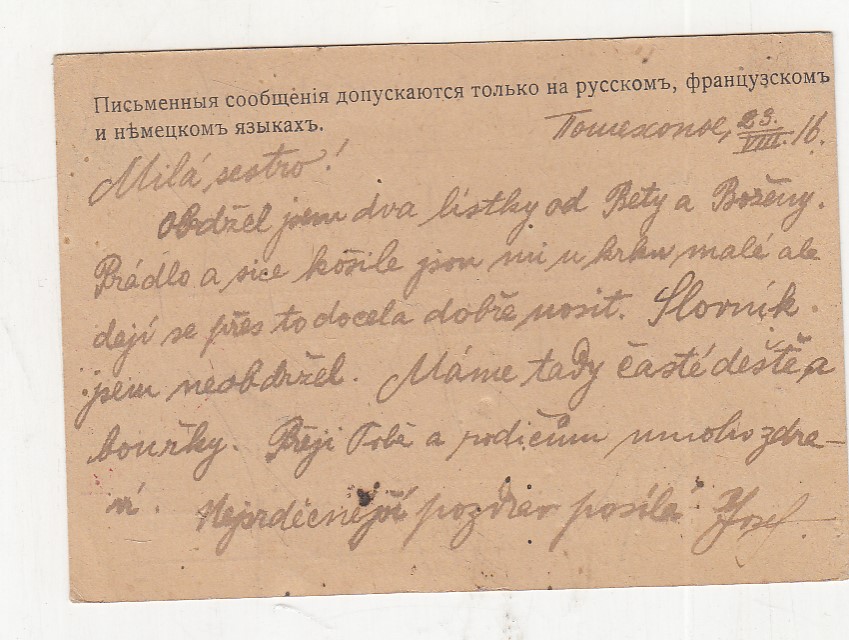 Письменныя сообщенія допускаются только на русскомъ, французскомъ
и нѣмецкомъ языкахъ.
Пошехонье, 23./VIII. 16.
Milá sestro!
Obdžel jsem dva lístky od Bety a Boženy.
Prádlo a sice košile jsou mi u krku malé ale
dejí se přes to docela dobře nosit. Slovník
jsem neobdržel. Máme tady časté deště a
bouřky. Přeji Tobě a rodičům mnoho zdra-
ví. Nejsrdečnější pozdrav posílá Josef.